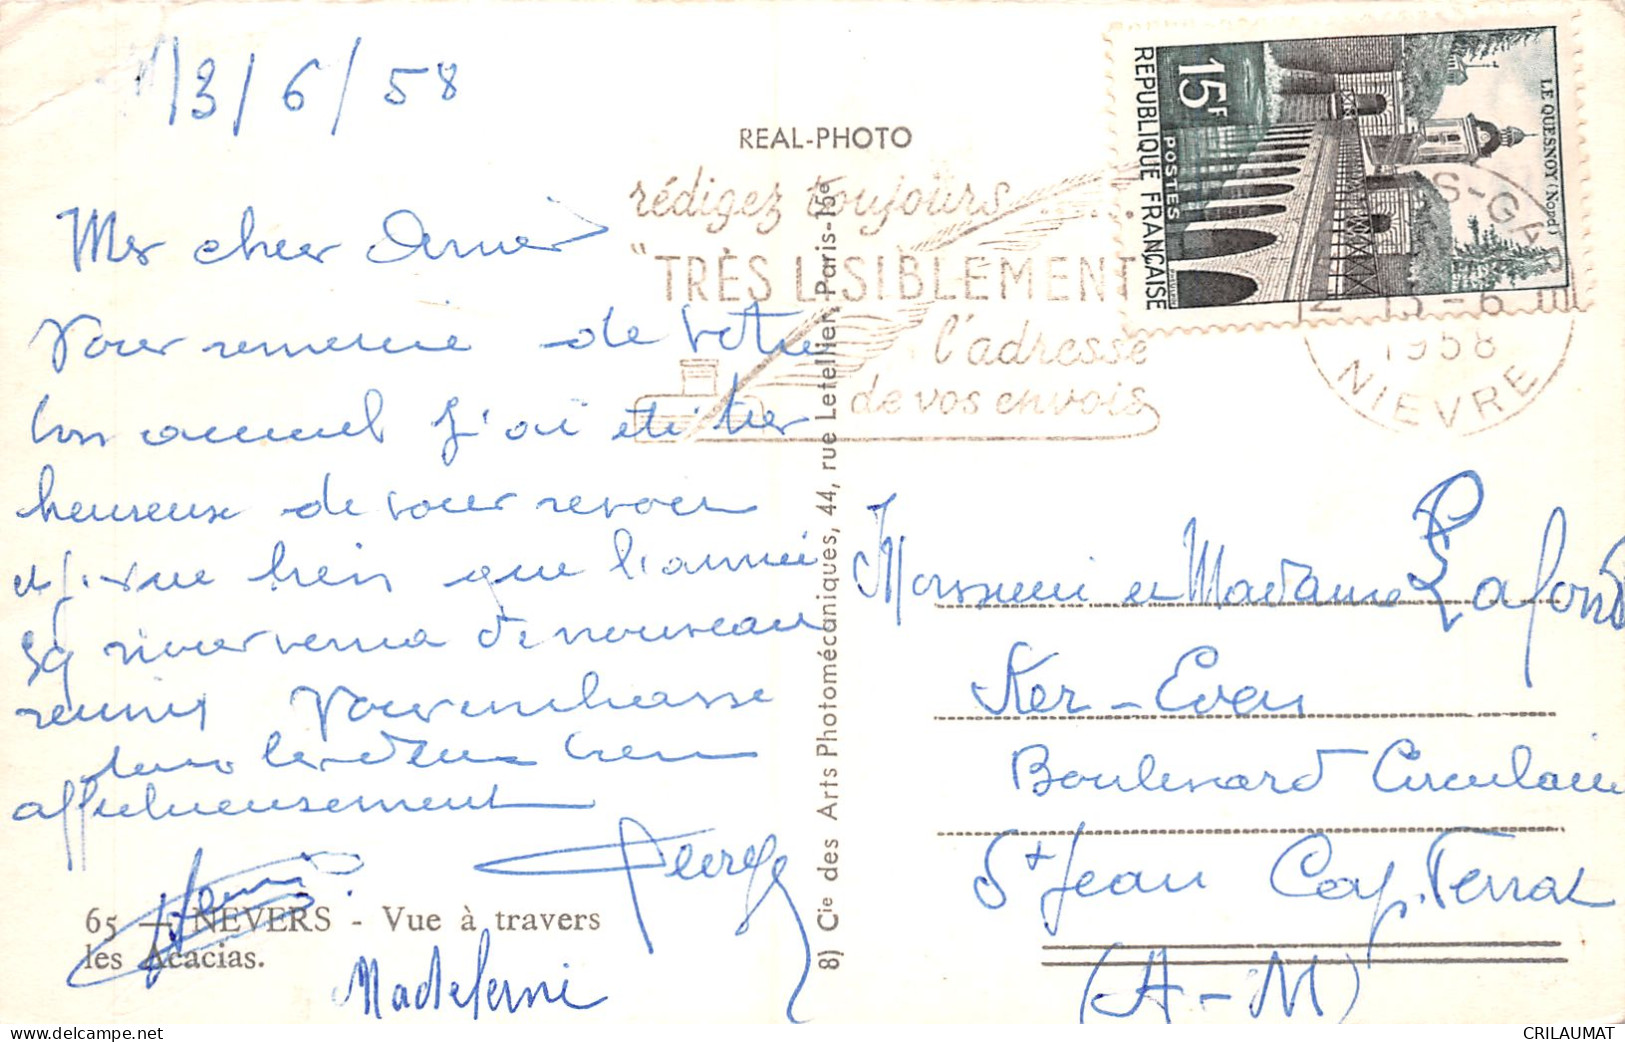 13/6/58
Mes chers Amis
Vous remercie de votre
bon accueil J'ai été très
heureux de vous revoir
et j'espère bien que l'année
59 nous verra de nouveau
réunis Vous embrasse
tous les deux bien
affectueusement
Henri
Madeleine
65 — NEVERS - Vue à travers
les Acacias.
REAL-PHOTO
8) Cie des Arts Photomécaniques, 44, rue Letellier, Paris-15e
rédigez toujours
"TRÈS LISIBLEMENT
l'adresse
de vos envois
15F
POSTES
REPUBLIQUE FRANÇAISE
LE QUESNOY (Nord)
S-GARE
13-6
1958
NIEVRE
Monsieur et Madame Lafont
Ker-Evan
Boulevard Circulaire
St Jean Cap. Ferrat
(A-M)
CRILAUMAT